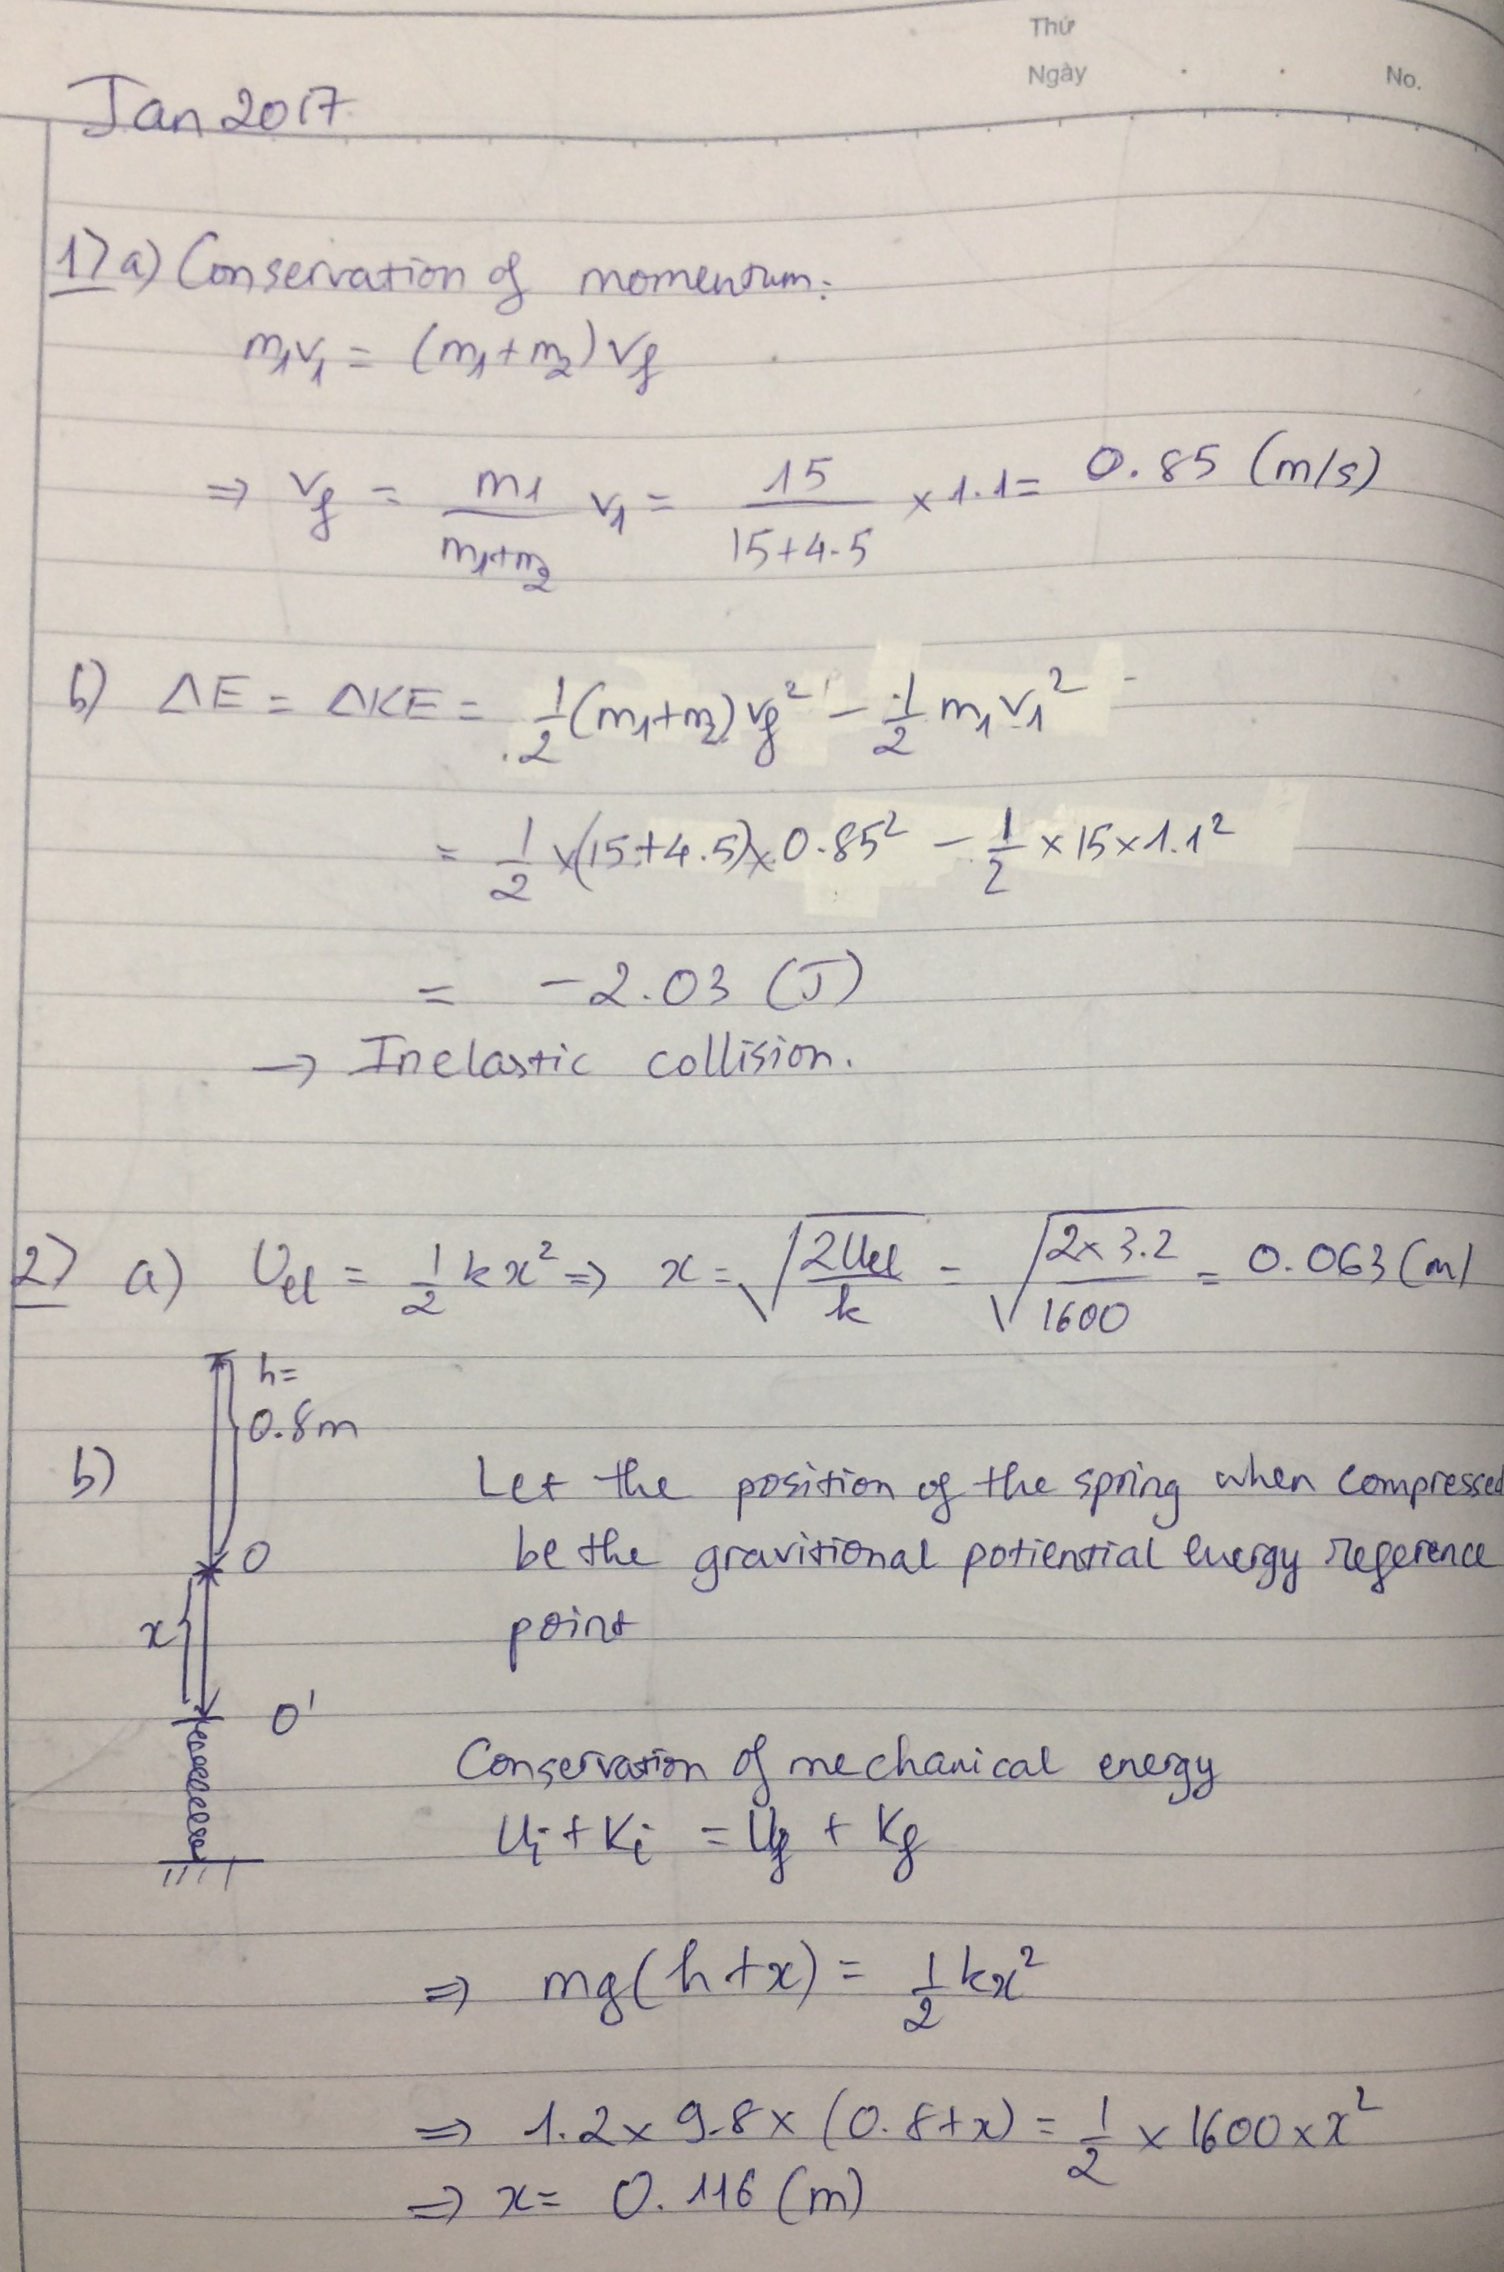 Thứ
Ngày . . No.
Jan 2017
1> a) Conservation of momentum:
m₁v₁ = (m₁+m₂)v_f
⇒ v_f = m₁/(m₁+m₂) v₁ = 15/(15+4.5) × 1.1 = 0.85 (m/s)
b) ΔE = ΔKE = 1/2 (m₁+m₂)v_f² − 1/2 m₁v₁²
= 1/2 ×(15+4.5)×0.85² − 1/2 × 15 × 1.1²
= −2.03 (J)
→ Inelastic collision.
2> a) U_el = 1/2 kx² ⇒ x = √(2U_el/k) = √(2×3.2/1600) = 0.063 (m)
h=
0.8m
b)
O
x
O'
Let the position of the spring when compressed
be the gravitional potiential energy reference
point
Conservation of mechanical energy
U_i + K_i = U_f + K_f
⇒ mg(h+x) = 1/2 kx²
⇒ 1.2 × 9.8 × (0.8+x) = 1/2 × 1600 × x²
⇒ x = 0.116 (m)